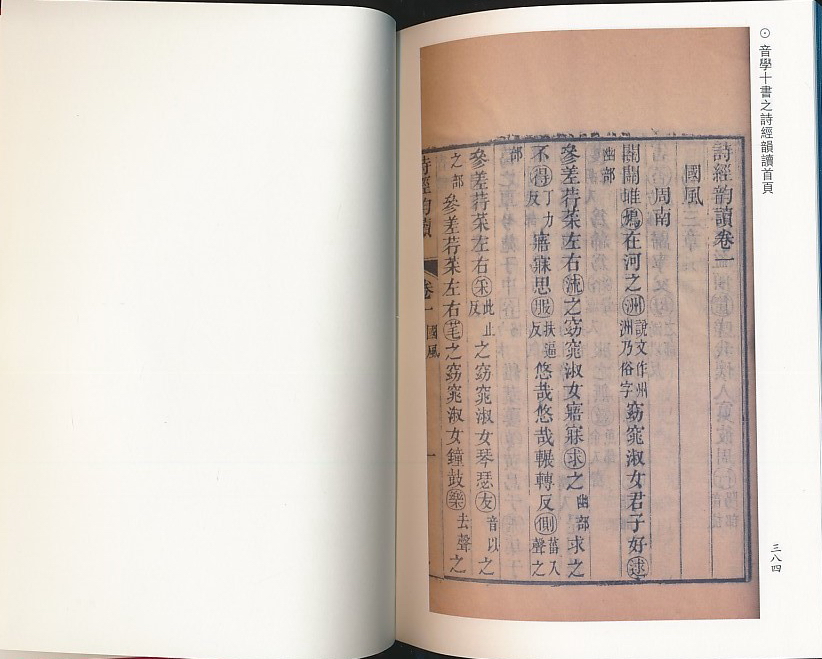 ⊙音學十書之詩經韻讀首頁
三八四
詩經韵讀卷一
國風
周南
關關雎鳩在河之洲說文作州洲乃俗字窈窕淑女君子好逑
幽部
參差荇菜左右流之窈窕淑女寤寐求之幽部求之
不得丁力反寤寐思服扶逼反悠哉悠哉輾轉反側菑入聲之
部
參差荇菜左右采此止反之窈窕淑女琴瑟友音以之
之部參差荇菜左右芼之窈窕淑女鐘鼓樂去聲之
詩經韵讀 卷一 國風 一